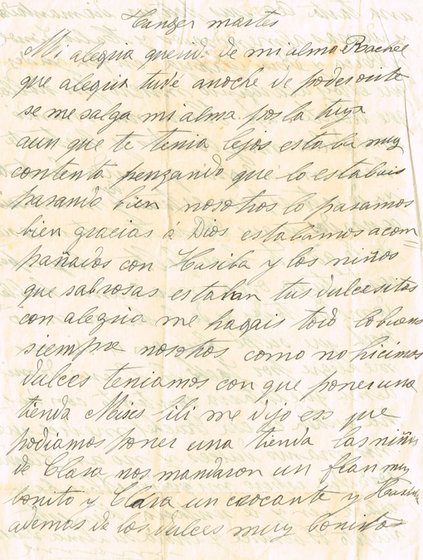 Tanger martes
Mi alegria querida de mi alma Rachel
que alegria tuve anoche de poder oirte
se me salga mi alma por la tuya
aun que te tenia lejos estaba muy
contenta penzando que lo estabais
pasando bien nosotros lo pasamos
bien gracias á Dios estabamos acom
pañados con Hasiba y los niños
que sabrosas estaban tus dulcesitas
con alegria me hagais todo lo bueno
siempre nosotros como no hicimos
dulces teniamos con que poner una
tienda Moises lili me dijo es que
podiamos poner una tienda las niñas
de Clara nos mandaron un flan muy
bonito y Clara un crocante y Hasiba
ademas de los dulces muy bonitos